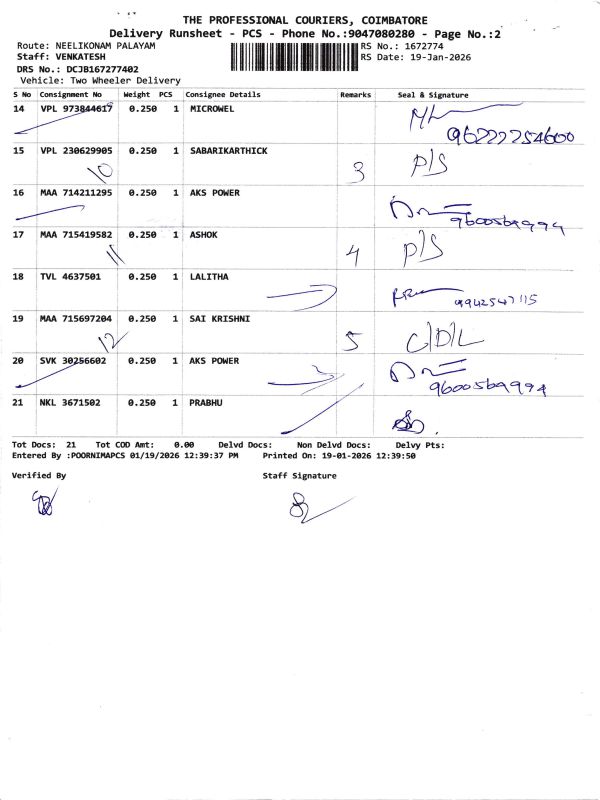 THE PROFESSIONAL COURIERS, COIMBATORE
Delivery Runsheet - PCS - Phone No.:9047080280 - Page No.:2
Route: NEELIKONAM PALAYAM RS No.: 1672774
Staff: VENKATESH RS Date: 19-Jan-2026
DRS No.: DCJB167277402
Vehicle: Two Wheeler Delivery
S No Consignment No Weight PCS Consignee Details Remarks Seal & Signature
14 VPL 973844617 0.250 1 MICROWEL
15 VPL 230629905 0.250 1 SABARIKARTHICK
10 3 P/S
16 MAA 714211295 0.250 1 AKS POWER
9600569994
17 MAA 715419582 0.250 1 ASHOK
11 4 P/S
18 TVL 4637501 0.250 1 LALITHA
9942547115
19 MAA 715697204 0.250 1 SAI KRISHNI
12 5 C/D/L
20 SVK 30256602 0.250 1 AKS POWER
9600569994
21 NKL 3671502 0.250 1 PRABHU
Tot Docs: 21 Tot COD Amt: 0.00 Delvd Docs: Non Delvd Docs: Delvy Pts:
Entered By :POORNIMAPCS 01/19/2026 12:39:37 PM Printed On: 19-01-2026 12:39:50
Verified By Staff Signature